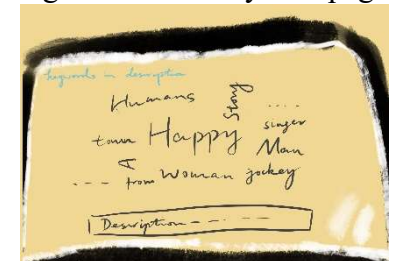 keywords in description
Humans
Story
....
town Happy singer
A Man
--- from Woman jockey
Description -- - ---